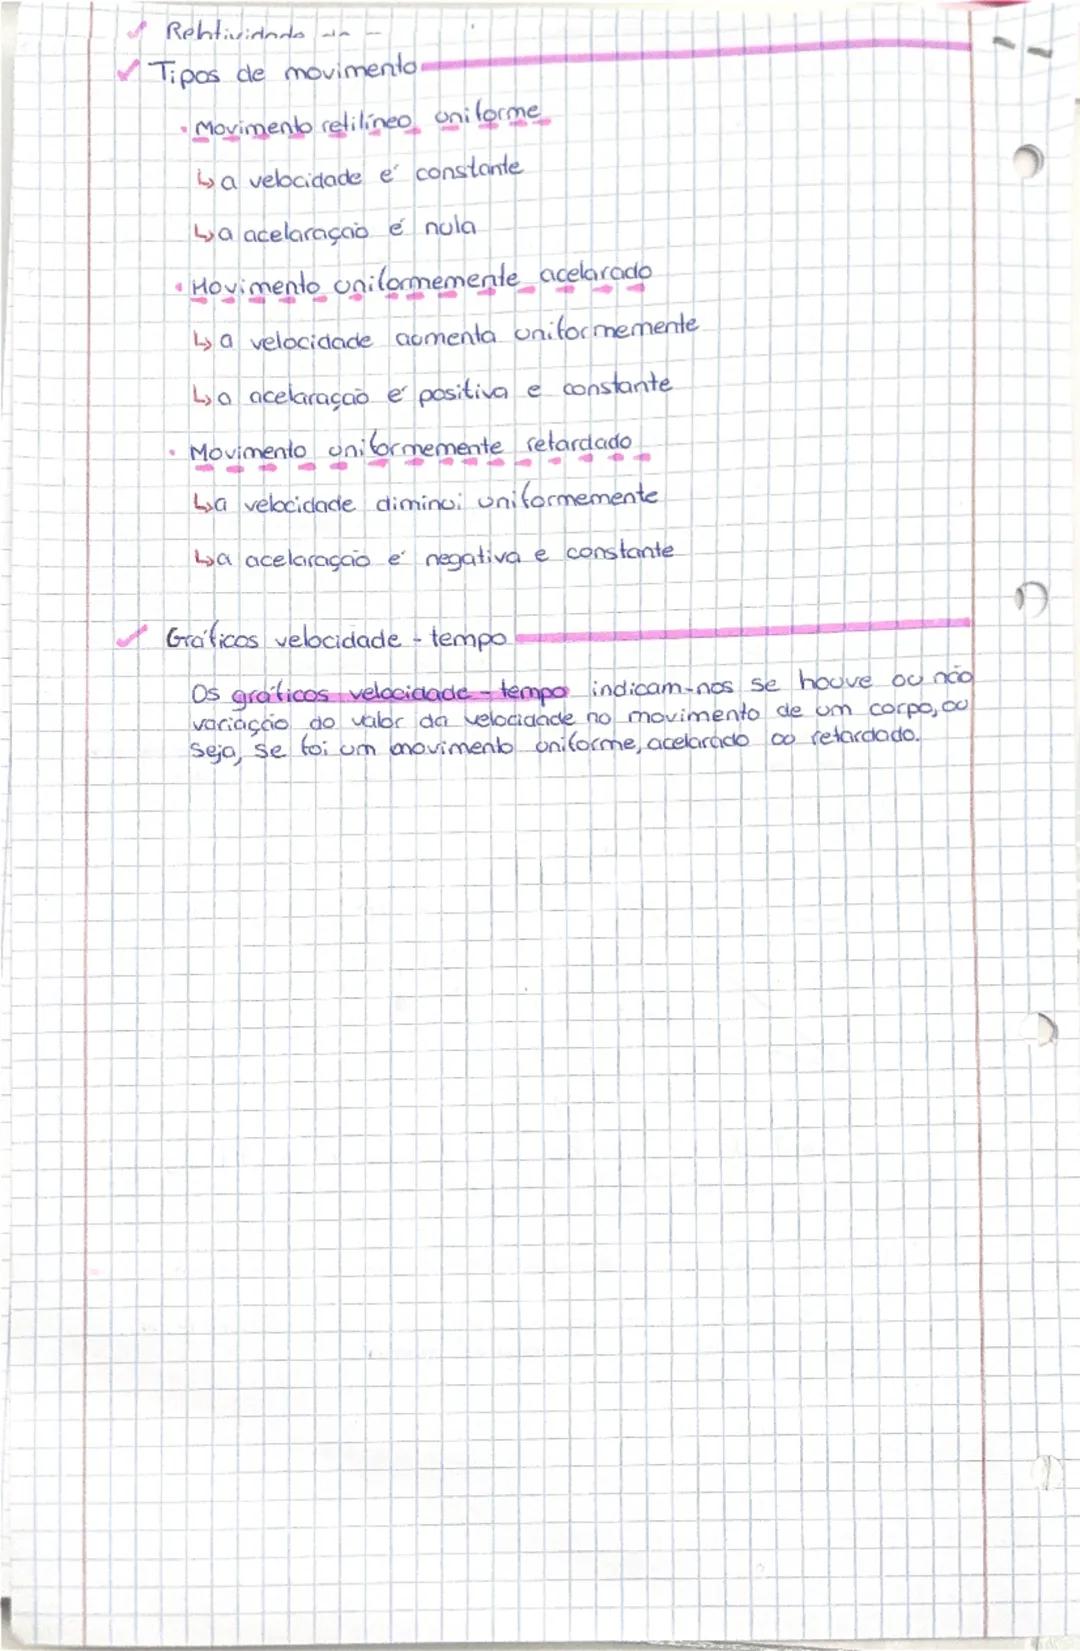 Relatividade
Tipos de movimento
• Movimento retilíneo uniforme
↳ a velocidade é constante
↳ a acelaração é nula
• Movimento uniformemente acelarado
↳ a velocidade aumenta uniformemente
↳ a acelaração é positiva e constante
• Movimento uniformemente retardado
↳ a velocidade diminui uniformemente
↳ a acelaração é negativa e constante
Gráficos velocidade - tempo
Os gráficos velocidade - tempo indicam-nos se houve ou não
variação do valor da velocidade no movimento de um corpo, ou
seja, se foi um movimento uniforme, acelarado ou retardado.